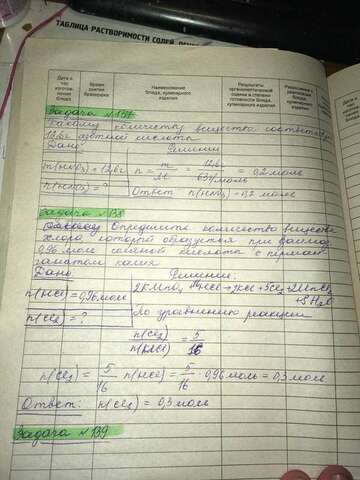 ТАБЛИЦА РАСТВОРИМОСТИ СОЛЕЙ,
Дата и час изготовления блюда
Время снятия бракеража
Наименование блюда, кулинарного изделия
Результаты органолептической оценки и степени готовности блюда, кулинарного изделия
Разрешение к реализации блюда, кулинарного изделия
Задача №137
Какому количеству вещества соответств
12,6г азотной кислоты
Дано: Решение
m(HNO3)=12,6г n = m/M = 12,6г / 63г/моль = 0,2 моль
n(HNO3)=? Ответ n(HNO3)=0,2 моль
Задача №138
Определите количество вещества
хлора, который образуется при взаимод
0,96 моль соляной кислоты с перман
ганатом калия
Дано: Решение:
n(HCl)=0,96моль 2KMnO4+16HCl→2KCl+5Cl2+2MnCl2
+8H2O
n(Cl2)=? По уравнению реакции
n(Cl2)/n(HCl) = 5/16
n(Cl2) = 5/16 n(HCl) = 5/16 · 0,96моль = 0,3 моль
Ответ: n(Cl2)=0,3моль
Задача №139